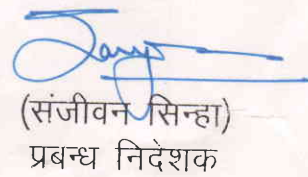 (संजीवन सिन्हा)
प्रबन्ध निदेशक